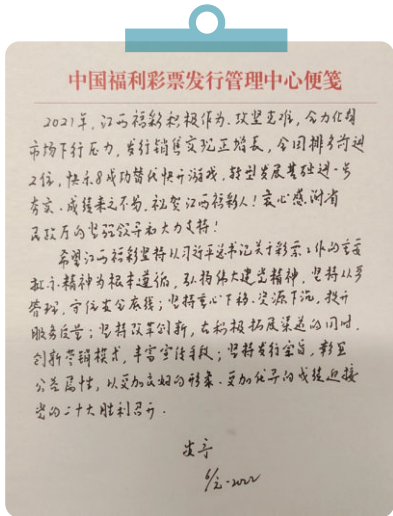 中国福利彩票发行管理中心便笺
2021年,江西福彩积极作为、攻坚克难,全力化解
市场下行压力,发行销售实现正增长,全国排名前进
2位,快乐8成功替代快开游戏,转型发展基础进一步
夯实,成绩来之不易,祝贺江西福彩人!衷心感谢省
民政厅的坚强领导和大力支持!
希望江西福彩坚持以习近平总书记关于彩票工作的重要
批示精神为根本遵循,弘扬伟大建党精神,坚持从严
管理,守住安全底线;坚持重心下移、资源下沉,提升
服务质量;坚持改革创新,在积极拓展渠道的同时,
创新营销模式,丰富宣传手段;坚持发行宗旨,彰显
公益属性,以更加良好的形象、更加优异的成绩迎接
党的二十大胜利召开.
6/元-2022